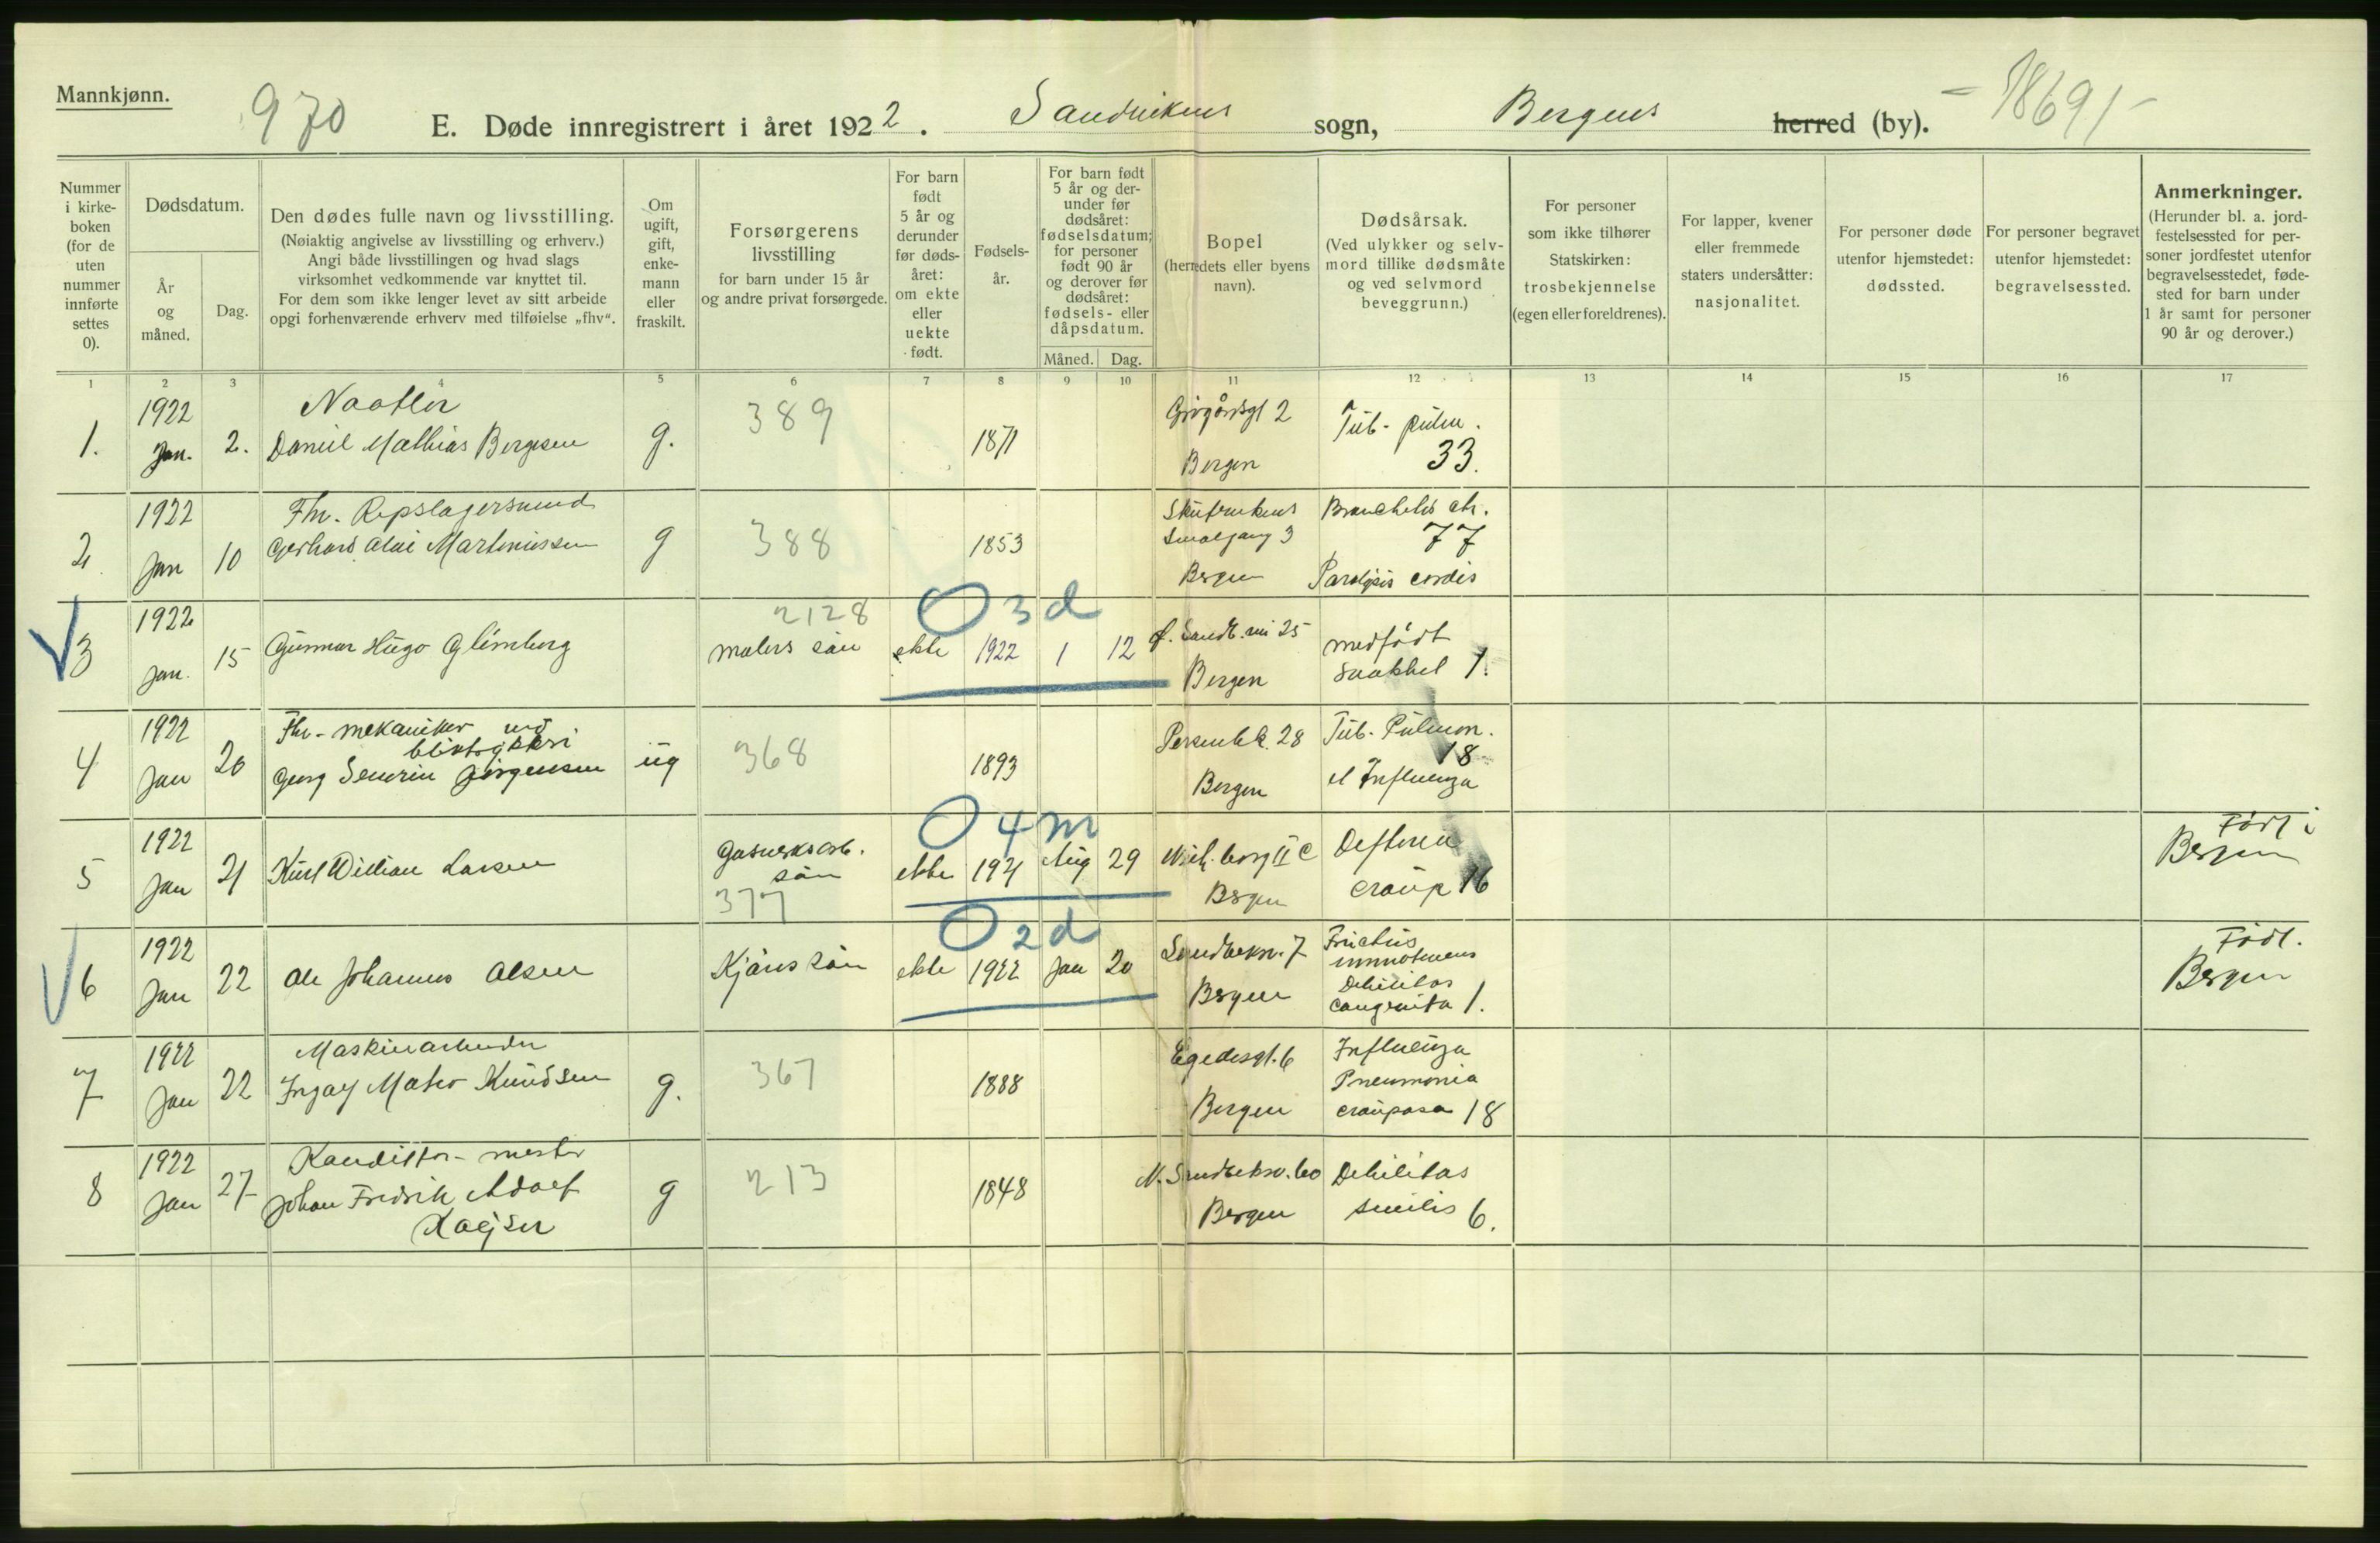 Mannkjønn.
970
E. Døde innregistrert i året 1922. Sandvikens sogn, Bergens herred (by). - 18691 -
Nummer i kirkeboken (for de uten nummer innførte settes 0).
Dødsdatum.
År og måned.
Dag.
Den dødes fulle navn og livsstilling.
(Nøiaktig angivelse av livsstilling og erhverv.)
Angi både livsstillingen og hvad slags
virksomhet vedkommende var knyttet til.
For dem som ikke lenger levet av sitt arbeide
opgi forhenværende erhverv med tilføielse „fhv“.
Om ugift, gift, enkemann eller fraskilt.
Forsørgerens livsstilling
for barn under 15 år
og andre privat forsørgede.
For barn født 5 år og derunder før dødsåret: om ekte eller uekte født.
Fødselsår.
For barn født 5 år og derunder før dødsåret: fødselsdatum; for personer født 90 år og derover før dødsåret: fødsels- eller dåpsdatum.
Måned. Dag.
Bopel
(herredets eller byens navn).
Dødsårsak.
(Ved ulykker og selvmord tillike dødsmåte og ved selvmord beveggrunn.)
For personer som ikke tilhører Statskirken: trosbekjennelse (egen eller foreldrenes).
For lapper, kvener eller fremmede staters undersåtter: nasjonalitet.
For personer døde utenfor hjemstedet: dødssted.
For personer begravet utenfor hjemstedet: begravelsessted.
Anmerkninger.
(Herunder bl. a. jordfestelsessted for personer jordfestet utenfor begravelsesstedet, fødested for barn under 1 år samt for personer 90 år og derover.)
1 2 3 4 5 6 7 8 9 10 11 12 13 14 15 16 17
1922 389 2
1. Jan. 2. Daniel Mathias Bergesen g. 1871 Tub. pulm.
Bergen 33.
1922 Fhv. Repslagersvend Bronchitis chr.
2 Jan 10 Gerhard Martinussen g 388 1853 Smalgang 3 77
Bergen Paralysis cordis
1922 2128 O 3 d
3 Jan. 15 Gunnar Hugo Glimberg malers søn ekte 1922 1 12 25 medfødt
Bergen 1.
1922 Fhv. mekaniker ved
4 Jan 20 Georg Severin Jørgensen ug 368 1893 28 Tub. Pulmon.
18
Bergen et Influenza
1922 Gasverksarb. O 4 m Født i
5 Jan 21 Kurt William Larsen søn ekte 1921 Aug 29 II C Difteri Bergen
377 Bergen croup 16
1922 O 2 d Født.
6 Jan 22 Ole Johannes Olsen søn ekte 1922 Jan 20 7 Fructus
immaturus Bergen
Bergen Debilitas
congenita 1.
1922 Maskinarbeider Egedesgt. 6 Influenza
7 Jan 22 Knudsen g. 367 1888 Pneumonia
Bergen crouposa 18
1922 Konditor-mester
8 Jan 27 Johan Fredrik Adolf g 213 1848 N. Sandviksv. 60 Debilitas
Kaijser Bergen senilis 6.